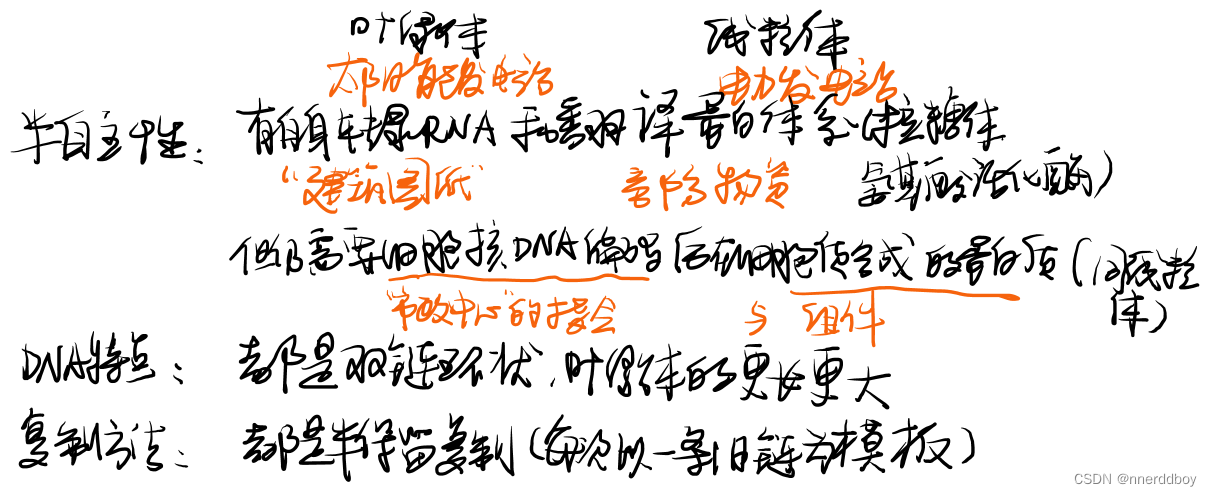 叶绿体 线粒体
太阳能发电站 电力发电站
半自主性: 有自身转录RNA和翻译蛋白体系(核糖体
"建筑图纸" 部分物资 氨基酸活化酶)
但仍需要细胞核DNA编码后在细胞质合成的蛋白质(同线粒
体)
"市政中心"的指令 与 组件
DNA特点: 都是双链环状,叶绿体的更长更大
复制方法: 都是半保留复制(每次以一条旧链为模板)
CSDN @nnerddboy